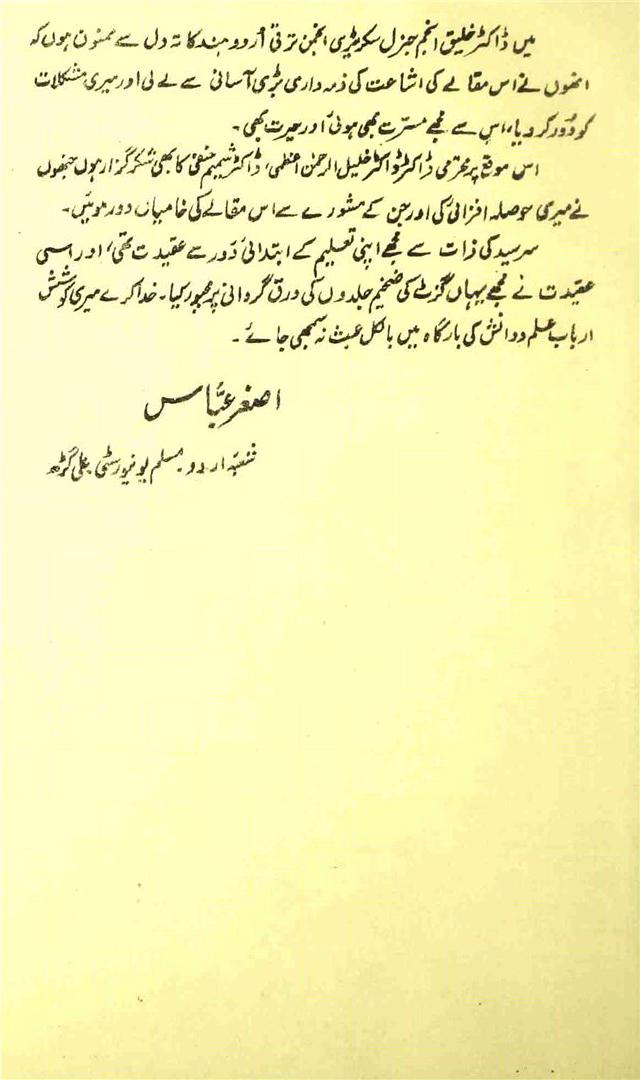 میں ڈاکٹر خلیق انجم جنرل سکریٹری انجمن ترقی اُردو ہند کا تہ دل سے ممنون ہوں کہ
انھوں نے اس مقالے کی اشاعت کی ذمہ داری بڑی آسانی سے لے لی اور میری مشکلات
کو دُور کر دیا، اس سے مجھے مسرت بھی ہوئی اور حیرت بھی۔
اس موقع پر محترمی ڈاکٹر ڈاکٹر خلیل الرحمٰن اعظمی، ڈاکٹر شمیم حنفی کا بھی شکر گزار ہوں جنھوں
نے میری حوصلہ افزائی کی اور جن کے مشورے سے اس مقالے کی خامیاں دور ہوئیں۔
سرسید کی ذات سے مجھے اپنی تعلیم کے ابتدائی دَور سے عقیدت تھی، اور اسی
عقیدت نے مجھے یہاں گزٹ کی ضخیم جلدوں کی ورق گردانی پر مجبور کیا۔ خدا کرے میری کوشش
ارباب علم و دانش کی بارگاہ میں بالکل عبث نہ سمجھی جائے۔
اصغر عبّاس
شعبۂ اردو۔ مسلم یونیورسٹی علی گڑھ